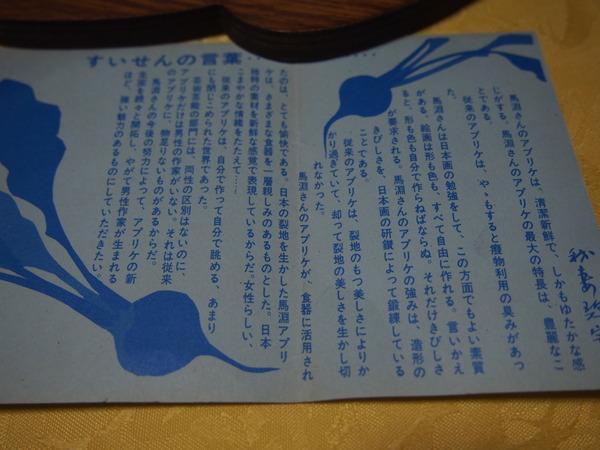 すいせんの言葉
馬淵さんのアプリケは、清潔新鮮で、しかもゆたかな感
じがする。馬淵さんのアプリケの最大の特長は、豊麗なこ
とである。
従来のアプリケは、やゝもすると癈物利用の臭みがあっ
た。
馬淵さんは日本画の勉強をして、この方面でもよい素質
がある。絵画は形も色も、すべて自由に作れる。言いかえ
ると、形も色も自分で作らねばならぬ。それだけきびしさ
が要求される。馬淵さんのアプリケの強みは、造形の
きびしさを、日本画の研鑚によって鍛錬している
ことである。
従来のアプリケは、裂地のもつ美しさによりか
かり過ぎていて、却って裂地の美しさを生かし切
れなかった。
馬淵さんのアプリケが、食器に活用され
たのは、とても愉快である。日本の裂地を生かした馬淵アプリ
ケは、さまざまな食器を一層親しみのあるものとした。日本
独特の素材を新鮮な感覚で表現しているからだ。女性らしい、
こまやかな情緒をたたえて……
従来のアプリケは、自分で作って自分で眺める、あまり
にも閉じこめられた世界であった。
芸術全般の部門には、両性の区別はないのに、
アプリケだけは男性の作家がいない。それは従来
のアプリケに、物足りないものがあるからだ。
馬淵さんの今後の努力によって、アプリケの新
生面を続々と開拓し、やがて男性作家が生まれる
ほど、強い魅力のあるものにしていただきたい。